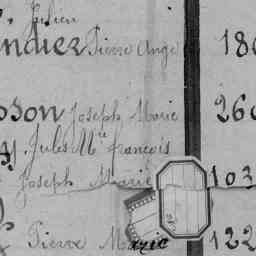 Julien
ndiez Pierre Ange 18
oson Joseph Marie 260
y Jules Mie francois
Joseph Marie 103
Pierre Marie 122